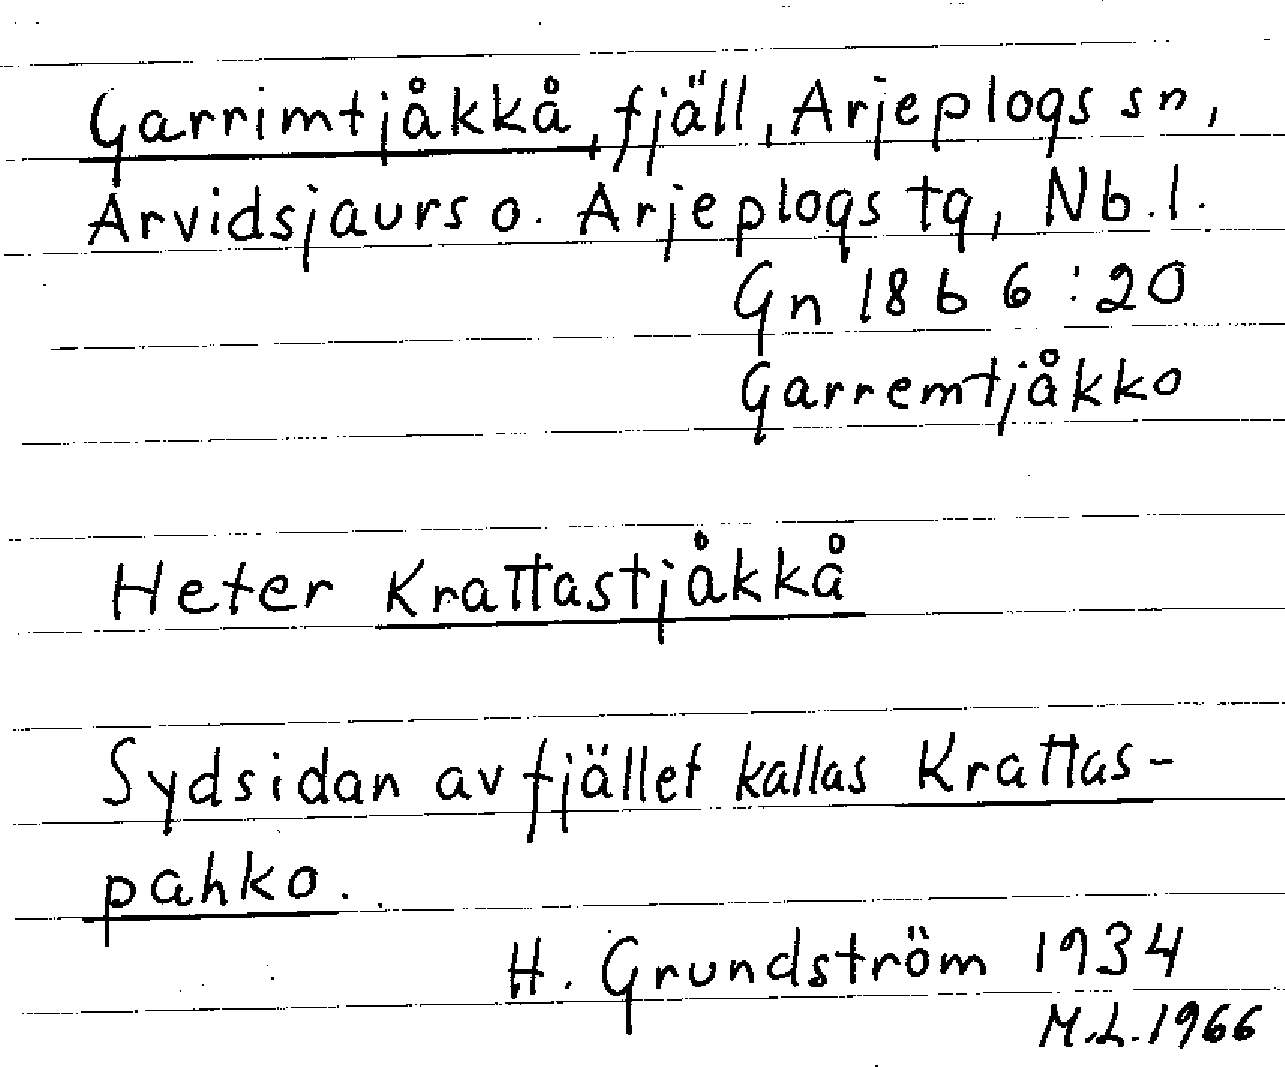 Garrimtjåkkå, fjäll, Arjeplogs sn,
Arvidsjaurs o. Arjeplogs tg, Nb.l.
Gn 18 b 6 : 20
Garremtjåkko
Heter Krattastjåkkå
Sydsidan av fjället kallas Krattas-
pahko.
H. Grundström 1934
M.L. 1966